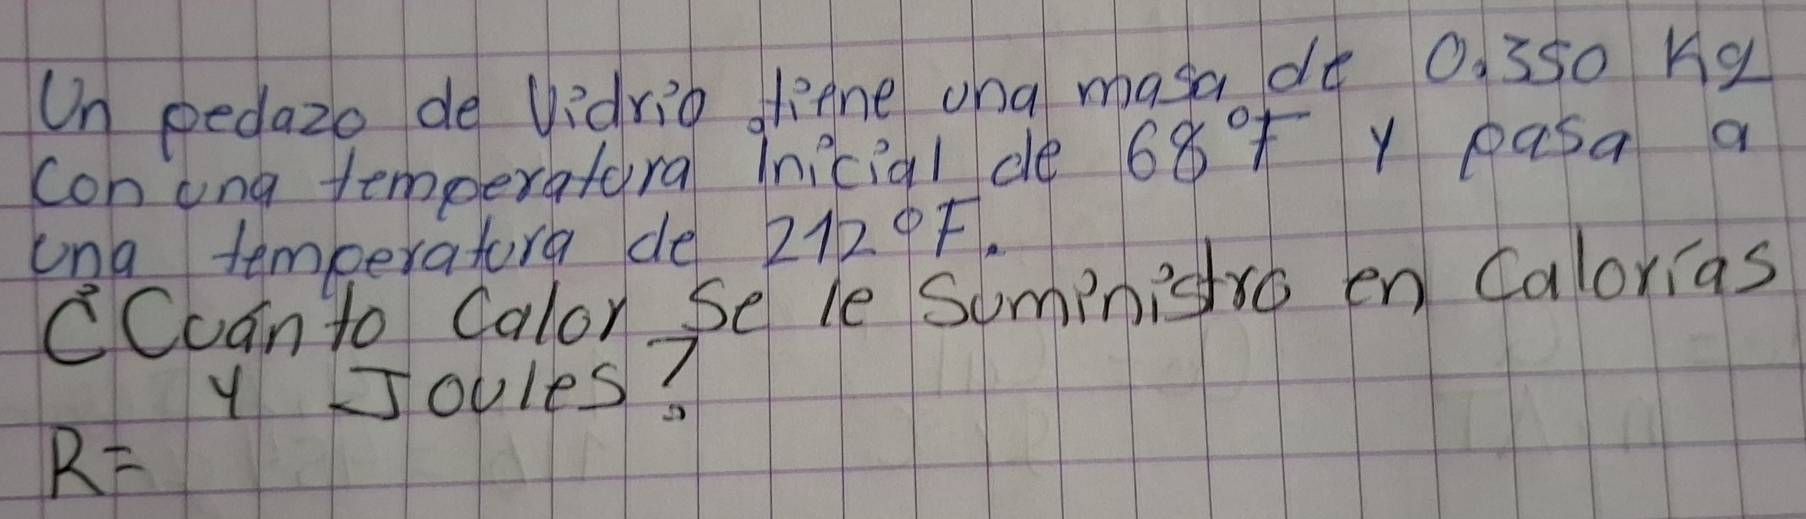 Un pedazo de Vidrio tiene una masa de 0.350 Kg
con una temperatura inicial de 68°F y pasa a
una temperatura de 212°F.
¿Cuánto Calor Se le Suministro en Calorías
y Joules?
R=